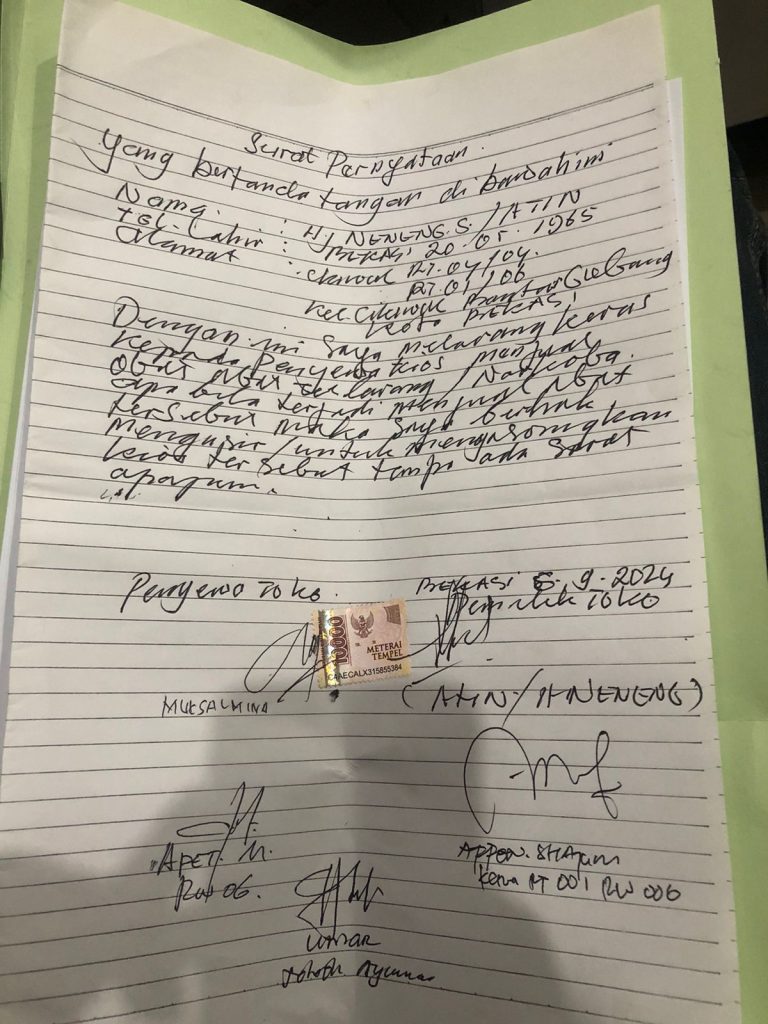 Surat Pernyataan.
Yang bertanda tangan di bawah ini
Nama. : Hj NENENG.S. / ATIN
tgl. Lahir : BEKASI 20.05.1965
Alamat : RT.04/04.
RT.01/06
Kel Cikiwul Bantar Gebang
Kota BEKASI
Dengan ini Saya melarang keras
Kepada Penyewa kios menjual
Obat obat terlarang / Narkoba.
Apa bila terjadi menjual obat
tersebut maka saya berhak
mengusir / untuk mengosongkan
kios tersebut tanpa ada surat
apapun.
Penyewa Toko. BEKASI 6.9.2024
Pemilik Toko
10000
METERAI
TEMPEL
CAAECALX315855384
MUKSALMINA (ATIN / H NENENG)
APET. M.
RW 06.
APPEN. SHAjum
Ketua RT 001 RW 006
Tokoh